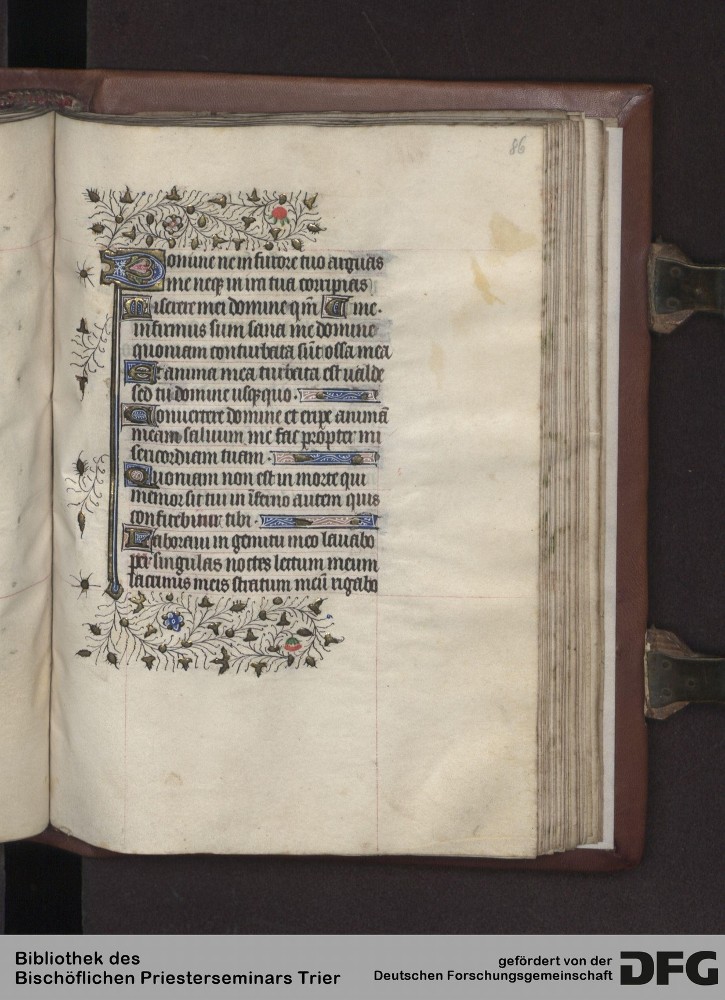 86
Domine ne in furore tuo arguas
me neqꝫ in ira tua corripias
Miserere mei domine qm̄ Et me·
infirmus sum sana me domine
quoniam conturbata sūt ossa mea
Et anima mea turbata est ualde
sed tu domine usqꝫquo ·
Conuertere domine et eripe animā
meam saluum me fac propter mi
sericordiam tuam ·
Quoniam non est in morte qui
memor sit tui in īferno autem quis
confitebitur tibi ·
Laboraui in gemitu meo lauabo
per singulas noctes lectum meum
lacrimis meis stratum meū rigabo
Bibliothek des
Bischöflichen Priesterseminars Trier
gefördert von der
Deutschen Forschungsgemeinschaft
DFG